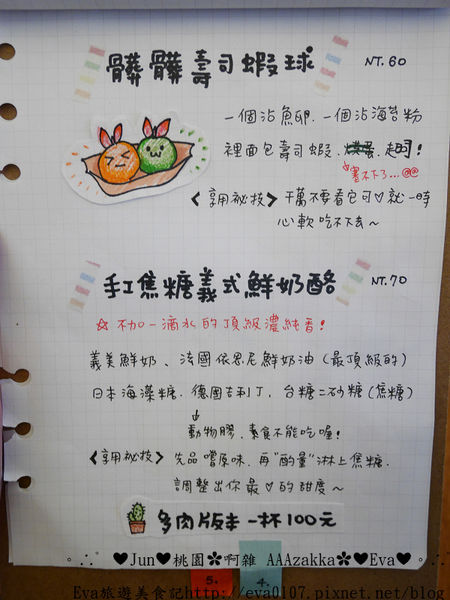 髒髒壽司蝦球 NT.60
一個沾魚卵.一個沾海苔粉
裡面包壽司蝦. 起司!
塞不下了...@@
<享用祕技> 千萬不要看它可♡就一時
心軟吃不下去~
手工焦糖義式鮮奶酪 NT.70
☆ 不加一滴水的頂級濃純香!
義美鮮奶、法國依思尼鮮奶油(最頂級的)
日本海藻糖.德國吉利丁,台糖二砂糖(焦糖)
↓
動物膠,素食不能吃喔!
<享用祕技> 先品嚐原味,再"酌量"淋上焦糖.
調整出你最♡的甜度~
多肉版本 一杯100元
♥Jun♥桃園✽啊雜 AAAzakka✽♥Eva♥
5. 4.
Eva旅遊美食記http://eva0107.pixnet.net/blog